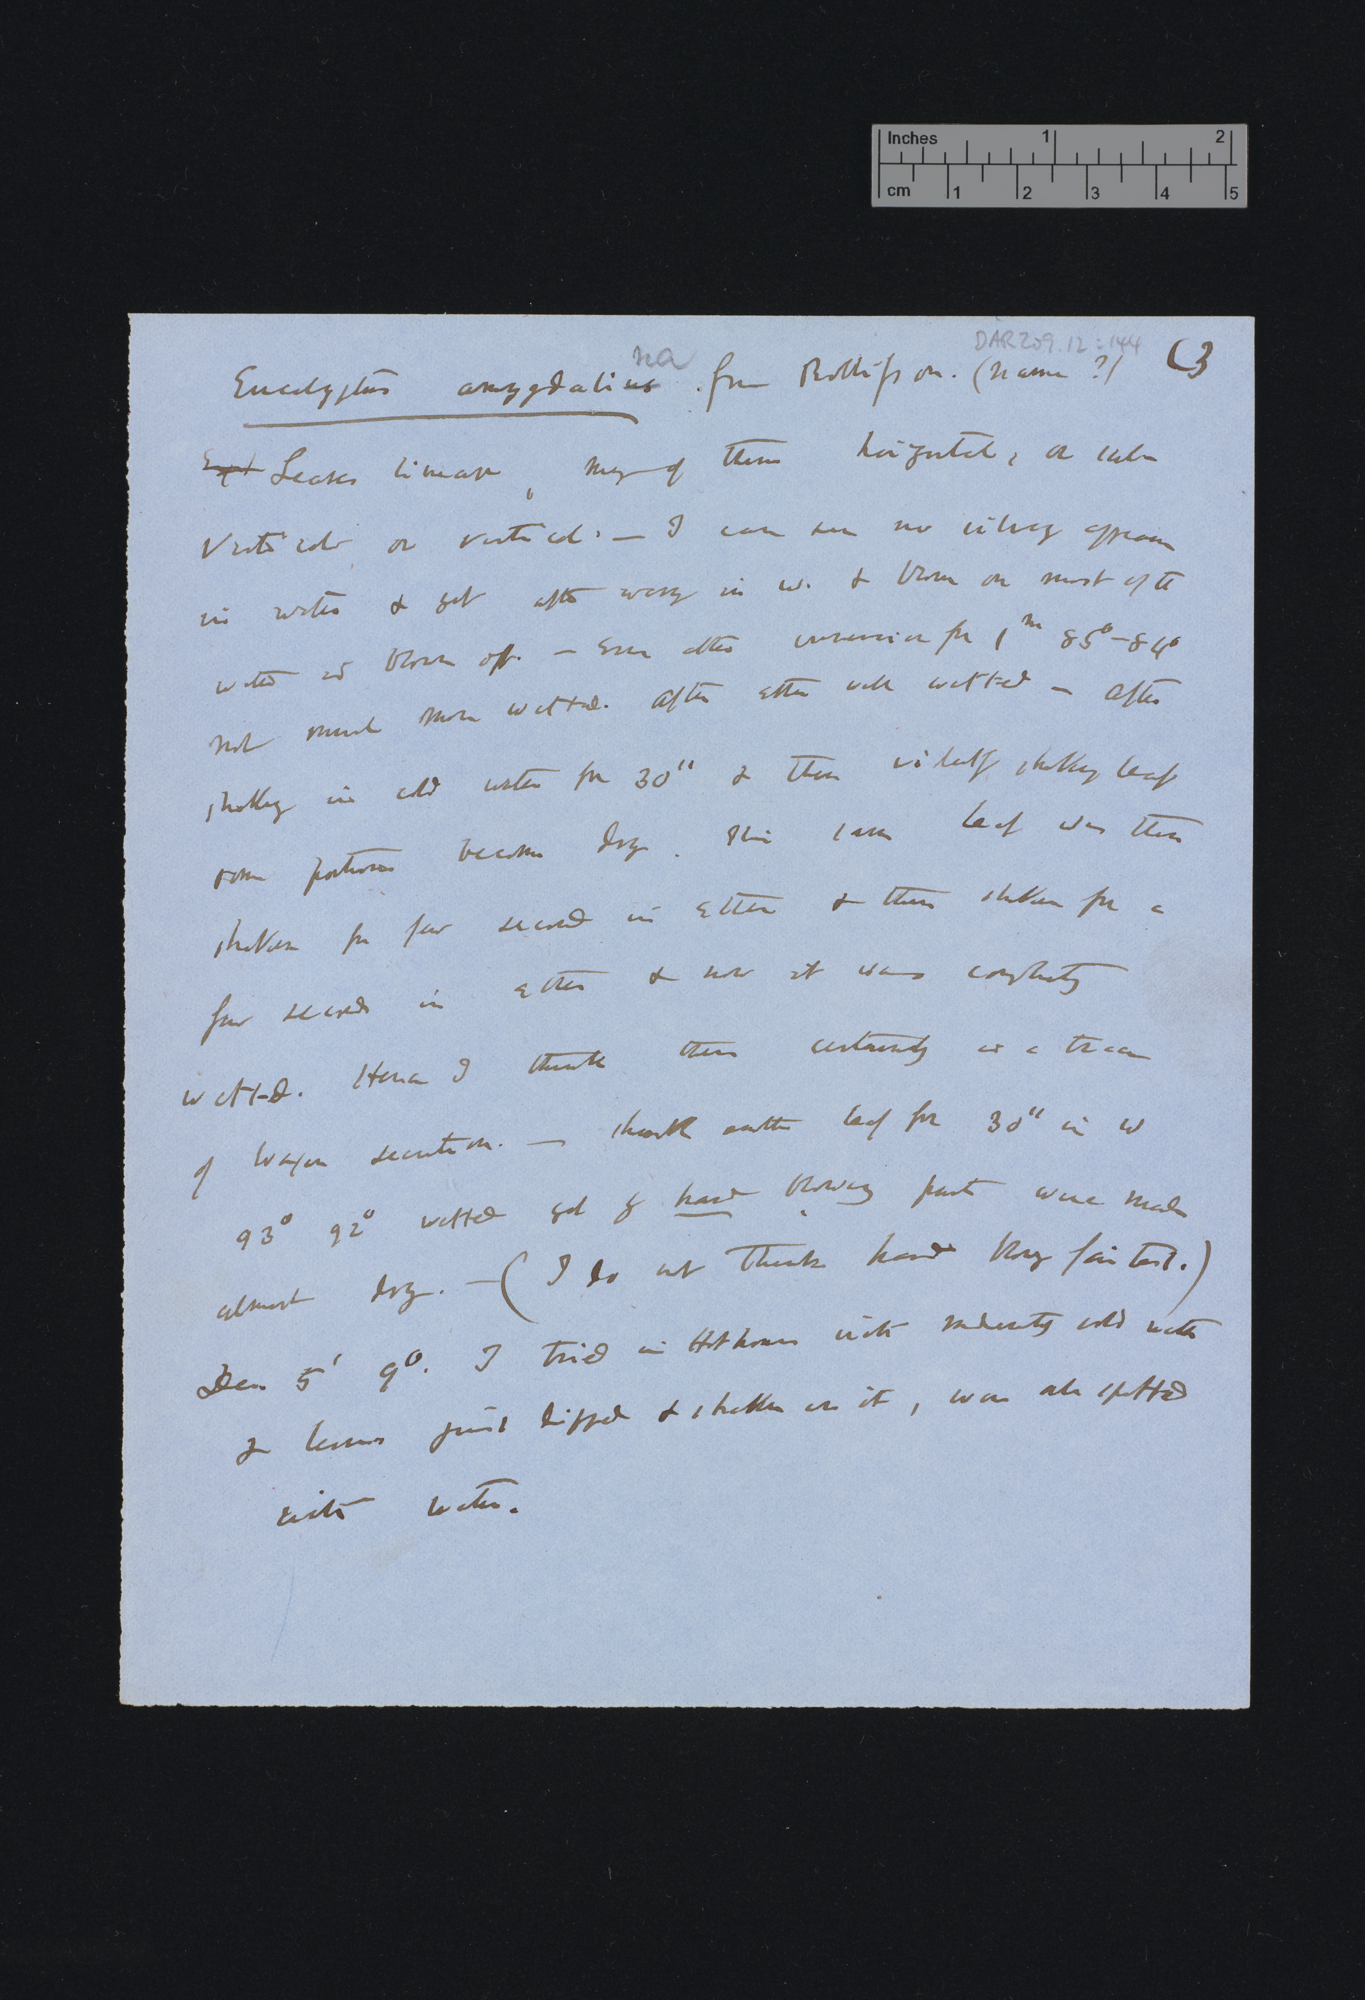 Inches 1 2
cm 1 2 3 4 5
DAR 209.12:144
na
Eucalyptus amygdalius from Rollisson. (name?) (3
Leaves linear, many of them horizontal, or sub-
vertical or vertical. — I can see no silvery appearance
in water & yet after waving in w. & blown on most of the
water is blown off. — Even after immersion for 1m 85°–84°
not much more wetted. After ether well wetted — After
shaking in cold water for 30" & then violently shaking leaf
some portions become dry. This same leaf was then
shaken for few seconds in ether & then shaken for a
few seconds in ether & now it was completely
wetted. Hence I think there certainly is a trace
of waxen secretion. — shook another leaf for 30" in w
93° 92° wetted yet by hard blowing parts were made
almost dry. — (I do not think hard blowing fair test.)
Dec 5' 90. I tried in Hothouse with moderately cold water
& leaves just dipped & shaken in it, were all spotted
with water.